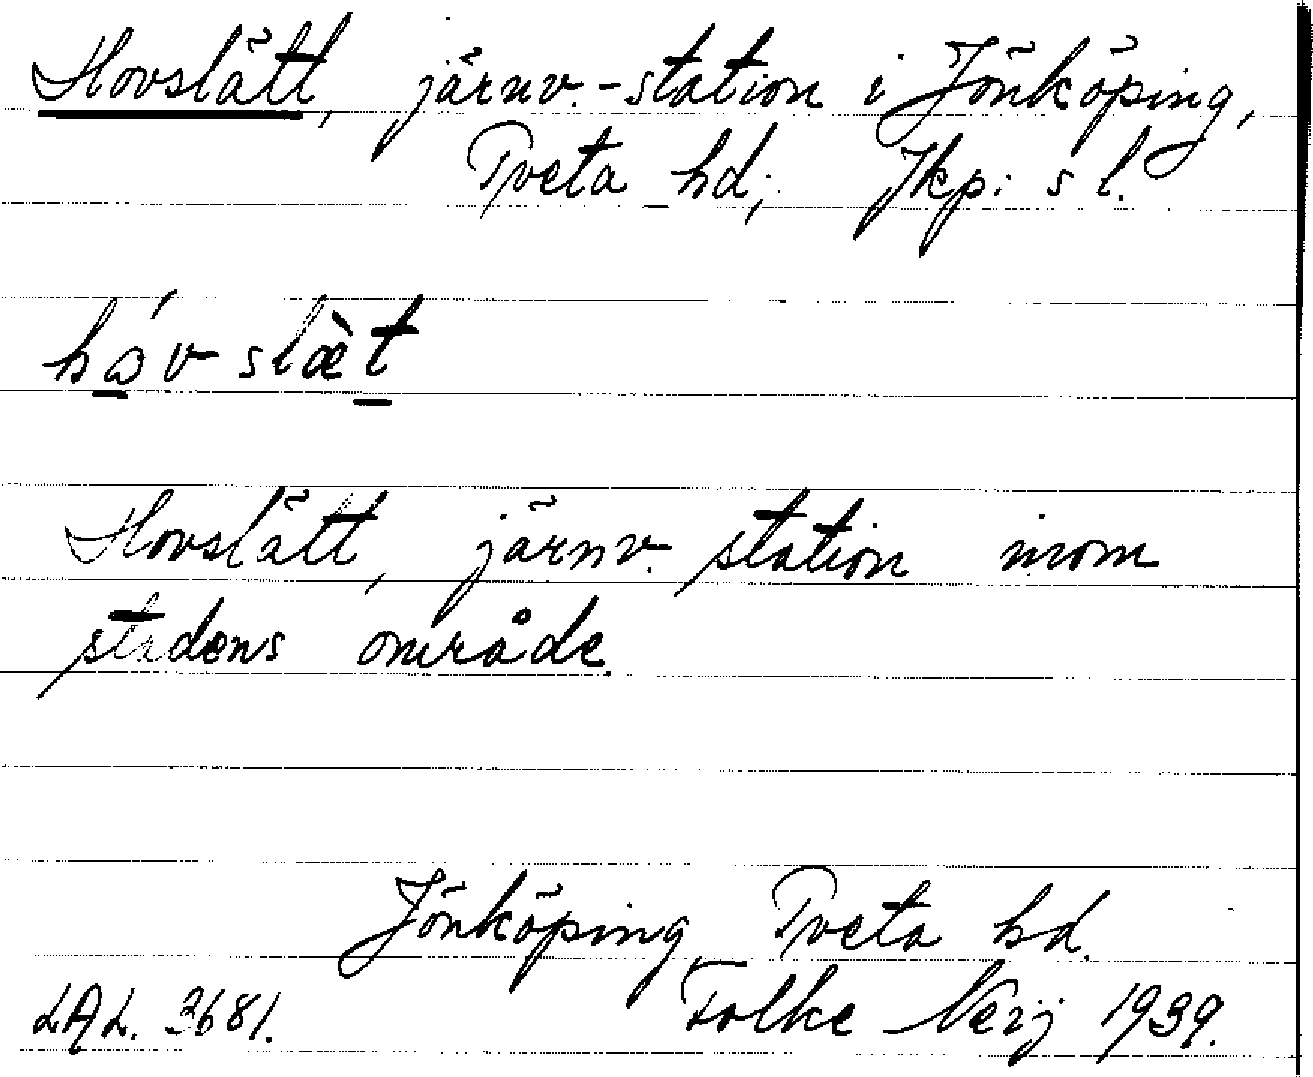 Hovslätt, järnv.-station i Jönköping,
Tveta hd; Jkp: s l.
hóv slæ̀t
Hovslätt, järnv. station inom
stadens område.
Jönköping, Tveta hd.
LAL. 3681. Folke Nerij 1939.